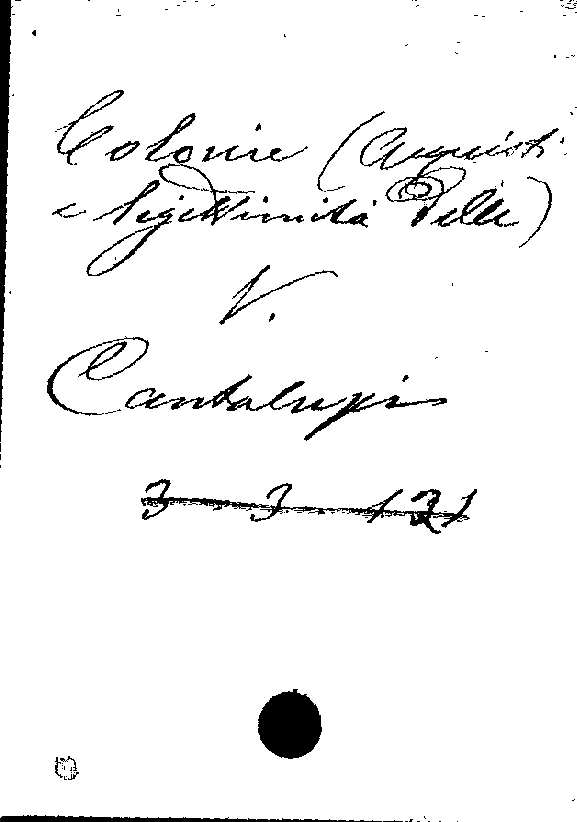 Colonie (Acquisti
e legittimità delle)
V.
Cantalupi
3 3 121